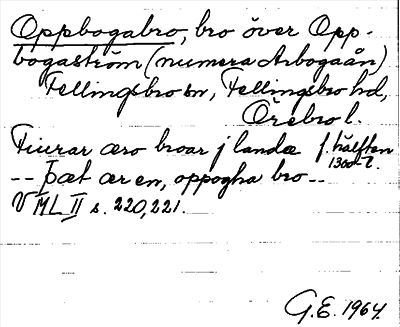 Oppbogabro, bro över Opp-
bogaström (numera Arbogaån)
Fellingsbro sn, Fellingsbro hd,
Örebro l.
Fiurar æro broar j landæ f. hälften
1300-t.
-- þæt ær en, oppogha bro --
VML II s. 220, 221.
G.E. 1964.